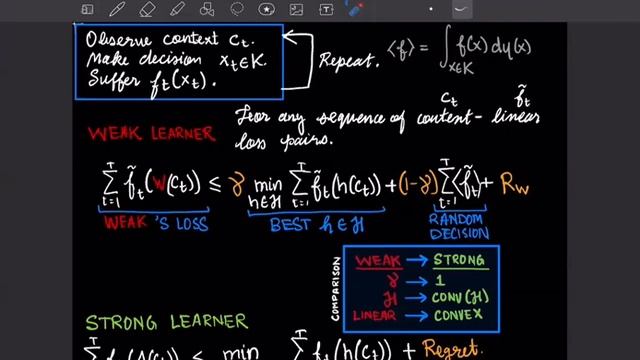 Observe context c_t.
Make decision x_t ∈ K.
Suffer f_t(x_t).
Repeat.
⟨f⟩ = ∫_{x∈K} f(x) dμ(x)
WEAK LEARNER
For any sequence of context - linear
c_t f̃_t
loss pairs.
Σ_{t=1}^T f̃_t(W(c_t)) ≤ γ min_{h∈H} Σ_{t=1}^T f̃_t(h(c_t)) + (1-γ) Σ_{t=1}^T ⟨f̃_t⟩ + R_W
WEAK'S LOSS
BEST h∈H
RANDOM
DECISION
COMPARISON
WEAK → STRONG
γ → 1
H → CONV(H)
LINEAR → CONVEX
STRONG LEARNER
min Σ^T f_t(h(c_t)) + Regret.